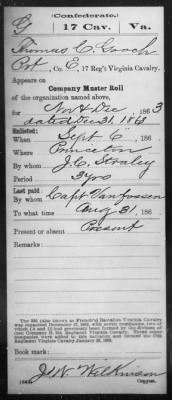 (Confederate.)
G 17 Cav. Va.
Thomas C. Gooch
Pvt, Co. E, 17 Reg't Virginia Cavalry.
Appears on
Company Muster Roll
of the organization named above,
for Nov & Dec, 1863
dated Dec 31 1863
Enlisted:
When Sept 6, 186
Where Princeton
By whom J. C. Straley
Period 3 yrs
Last paid
By whom Capt Vanfossen
To what time Aug 31, 186
Present or absent Present
Remarks:
Book mark:
J. W. Wilkinson
Copyist.